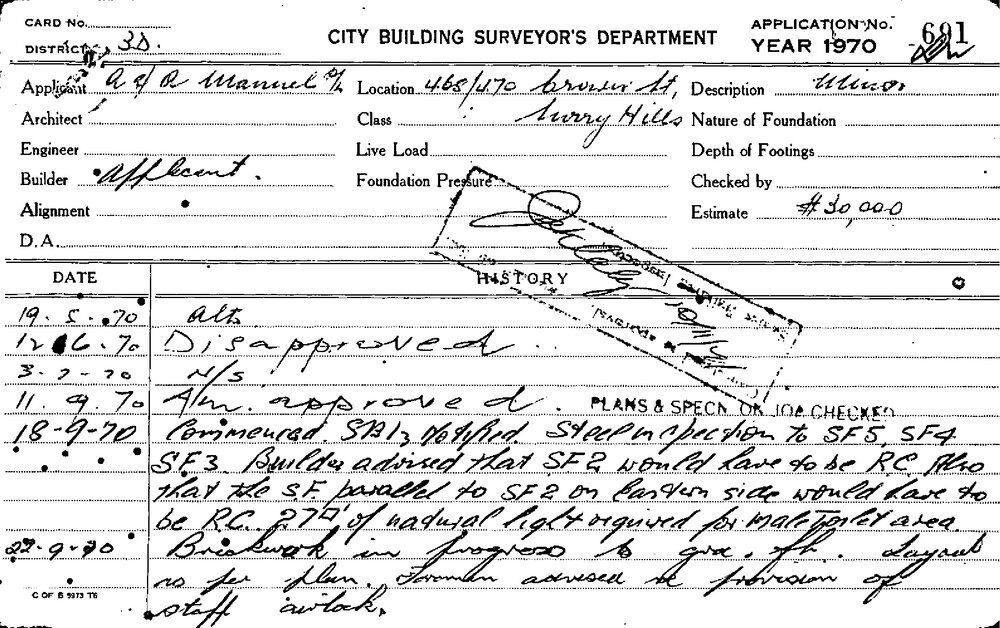 CARD No.
DISTRICT 3D.
CITY BUILDING SURVEYOR'S DEPARTMENT
APPLICATION No. 691
YEAR 1970
Applicant A & R Manuel P/L Location 468/470 Crown St, Description Minor
Architect Class Surry Hills Nature of Foundation
Engineer Live Load Depth of Footings
Builder Applicant. Foundation Pressure Checked by
Alignment Estimate $30,000
D.A.
DATE HISTORY
19.5.70 Alts.
12.6.70 Disapproved
3-7-70 N/S
11.9.70 A/m. approved. PLANS & SPECN. ON JOB CHECKED
18-9-70 Commenced. Notified. Steel inspection to SF5, SF4
SF3. Builder advised that SF2 would have to be RC. Also
that the SF. parallel to SF2 on Eastern side would have to
be R.C. 27□' of natural light required for Male Toilet area.
22-9-70 Brickwork in progress to grd. flr. Layout
as per plan. Foreman advised re provision of
staff airlock.
C OF B 5973 T6